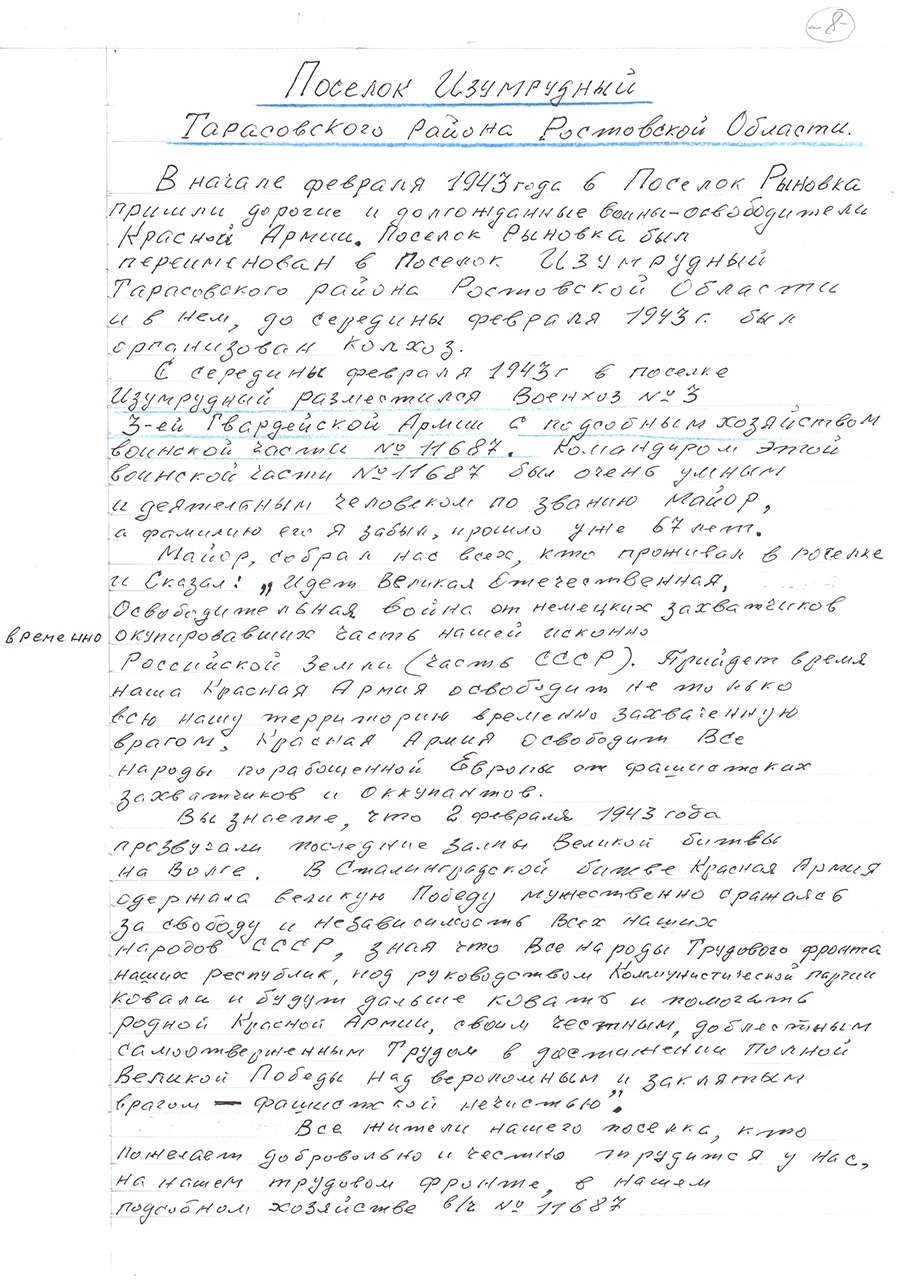 -8-
Поселок Изумрудный
Тарасовского района Ростовской Области.
В начале февраля 1943 года в Поселок Рыновка
пришли дорогие и долгожданные воины-освободители
Красной Армии. Поселок Рыновка был
переименован в Поселок Изумрудный
Тарасовского района Ростовской Области
и в нем, до середины февраля 1943 г. был
организован колхоз.
С середины февраля 1943 г в поселке
Изумрудный разместился Военхоз № 3
3-ей Гвардейской Армии с подсобным хозяйством
воинской части № 11687. Командиром этой
воинской части № 11687 был очень умным
и деятельным человеком по званию Майор,
а фамилию его я забыл, прошло уже 67 лет.
Майор, собрал нас всех, кто проживал в поселке
и Сказал: „Идет Великая Отечественная,
Освободительная война от немецких захватчиков
временно окупировавших часть нашей исконно
Российской Земли (часть СССР). Прийдет время
наша Красная Армия освободит не только
всю нашу территорию временно захваченную
врагом, Красная Армия Освободит Все
народы порабощенной Европы от фашистских
захватчиков и Оккупантов.
Вы знаете, что 2 февраля 1943 года
прозвучали последние залпы Великой битвы
на Волге. В Сталинградской битве Красная Армия
одержала великую Победу мужественно сражаясь
за свободу и независимость Всех наших
народов СССР, зная что Все народы Трудового фронта
наших республик, под руководством Коммунистической партии
ковали и будут дальше ковать и помогать
родной Красной Армии, своим честным, доблестным
самоотверженным Трудом в достижении Полной
Великой Победы над вероломным и заклятым
врагом – фашистской нечистью".
Все жители нашего поселка, кто
пожелает добровольно и честно трудится у нас,
на нашем трудовом фронте, в нашем
подсобном хозяйстве в/ч № 11687